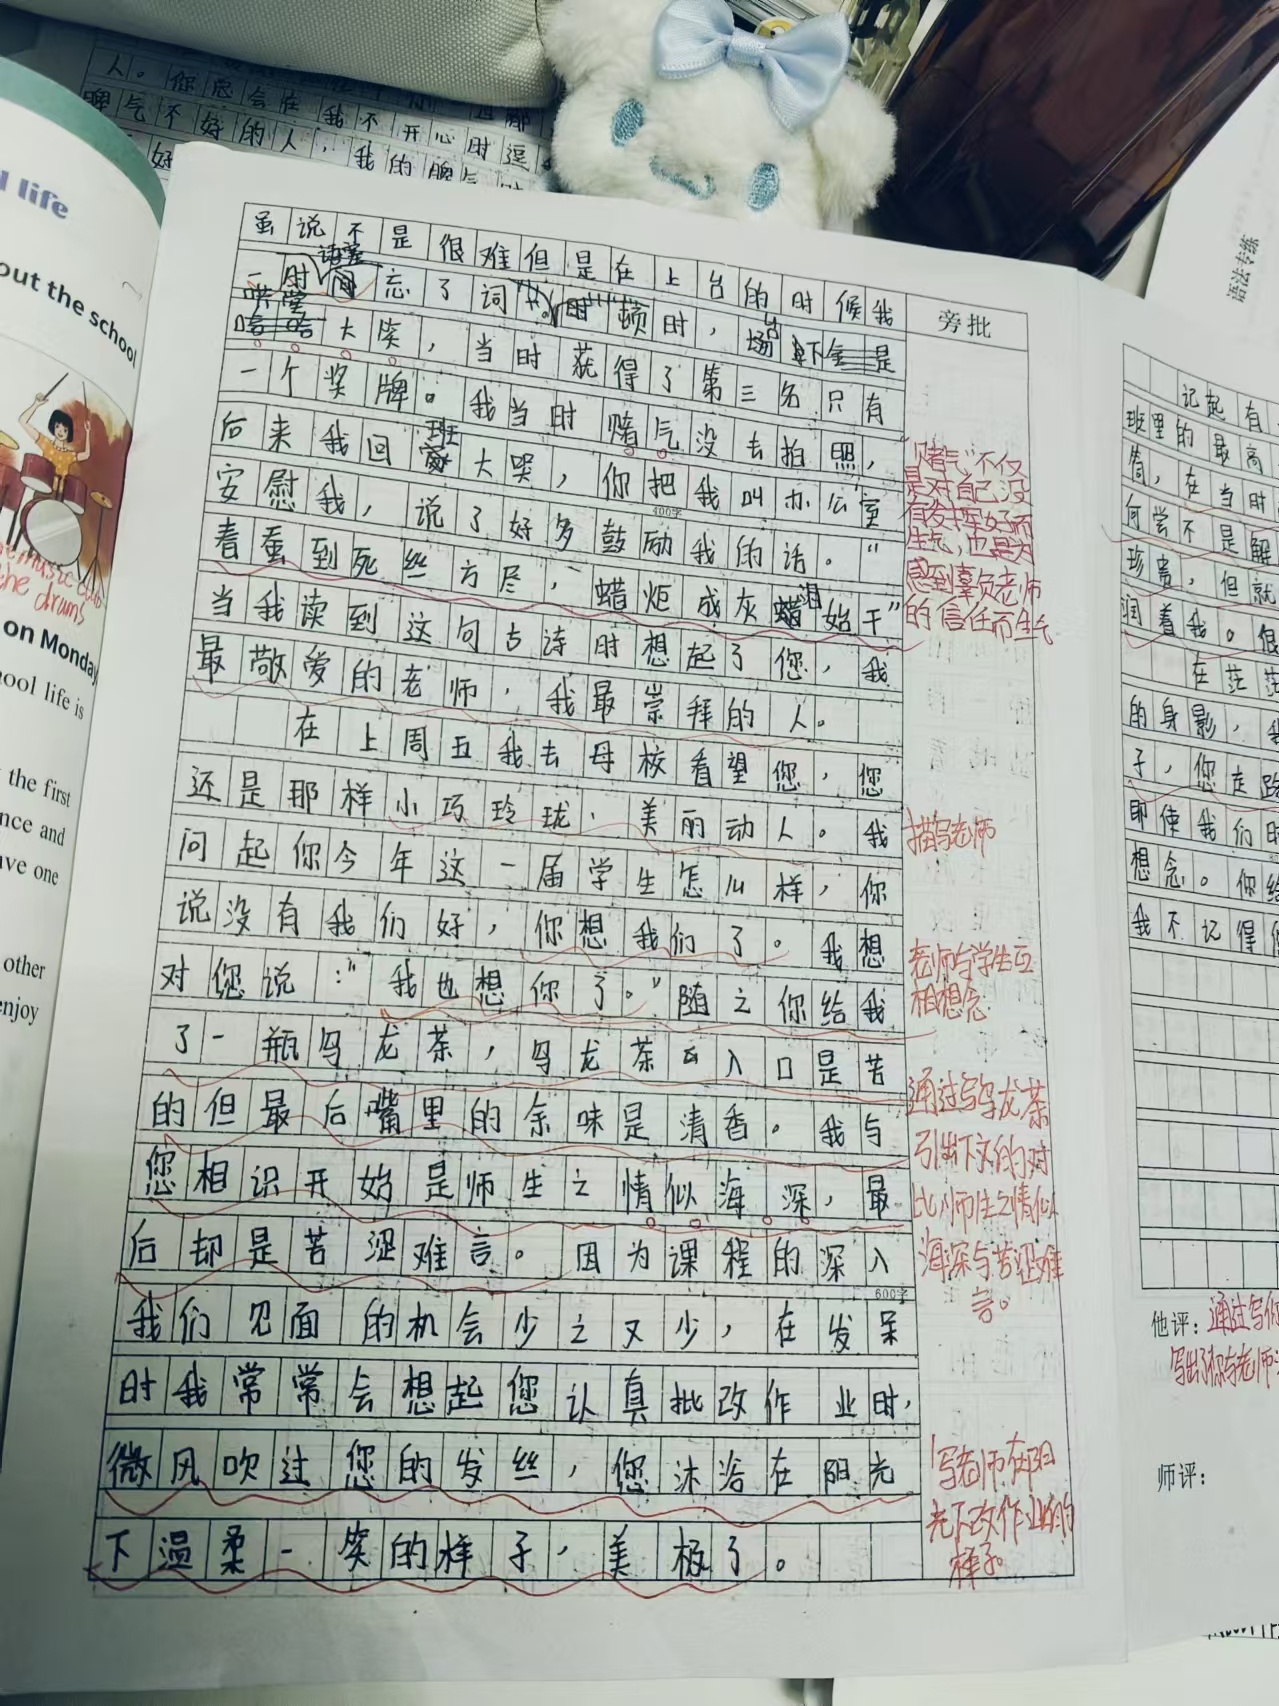 人。你总会在我不开心时逗
脾气不好的人,我的脾气
d life
out the school
the drums
on Monday
ool life is
the first
nce and
ave one
other
enjoy
语法专练
虽说不是很难但是在上台的时候我
一时语塞忘了词,顿时,场下是
哄堂大笑,当时获得了第三名只有
一个奖牌。我当时赌气没去拍照,
后来我回班大哭,你把我叫办公室
安慰我,说了好多鼓励我的话。"
400字
春蚕到死丝方尽,蜡炬成灰泪始干"
当我读到这句古诗时想起了您,我
最敬爱的老师,我最崇拜的人。
在上周五我去母校看望您,您
还是那样小巧玲珑、美丽动人。我
问起你今年这一届学生怎么样,你
说没有我们好,你想我们了。我想
对您说:"我也想你了。"随之你给我
了一瓶乌龙茶,乌龙茶入口是苦
的但最后嘴里的余味是清香。我与
您相识开始是师生之情似海深,最
后却是苦涩难言。因为课程的深入
600字
我们见面的机会少之又少,在发呆
时我常常会想起您认真批改作业时,
微风吹过您的发丝,您沐浴在阳光
下温柔一笑的样子,美极了。
旁批
"赌气"不仅
是对自己没
有发挥好而
生气,也是为
感到辜负老师
的信任而生气
描写老师
老师与学生互
相想念
通过写乌龙茶
引出下文的对
比,师生之情似
海深与苦涩难
言。
写老师在阳
光下改作业的
样子。
记起有
班里的最高
筒,在当时
何尝不是解
珍贵,但就
润着我。很
在茫茫
的身影,我
子,您走路
即使我们
想念。你给
我不记得
他评:通过写你
写出了你与老师
师评: